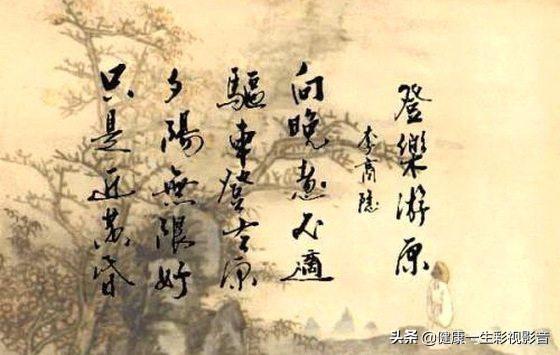 登樂游原
李商隱
向晚意不適
驅車登古原
夕陽無限好
只是近黃昏
头条 @健康一生彩视影音